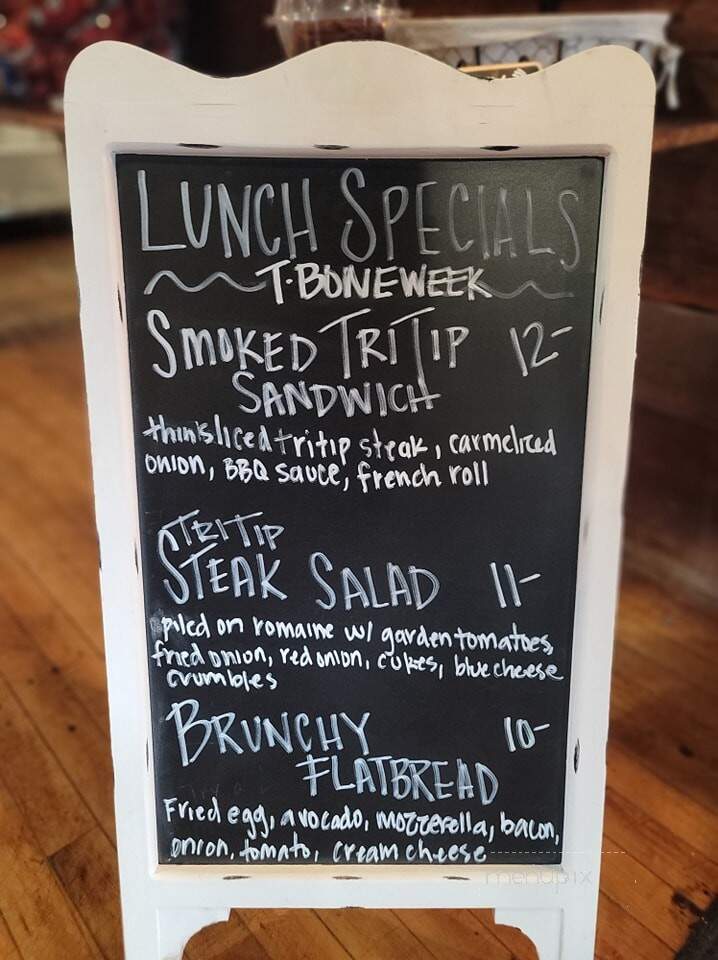 LUNCH SPECIALS
T-BONE WEEK
SMOKED TRI TIP 12-
SANDWICH
thin sliced tritip steak, carmelized
onion, BBQ sauce, french roll
TRI TIP
STEAK SALAD 11-
piled on romaine w/ garden tomatoes,
fried onion, red onion, cukes, blue cheese
crumbles
BRUNCHY 10-
FLATBREAD
Fried egg, avocado, mozzerella, bacon,
onion, tomato, cream cheese
menupix